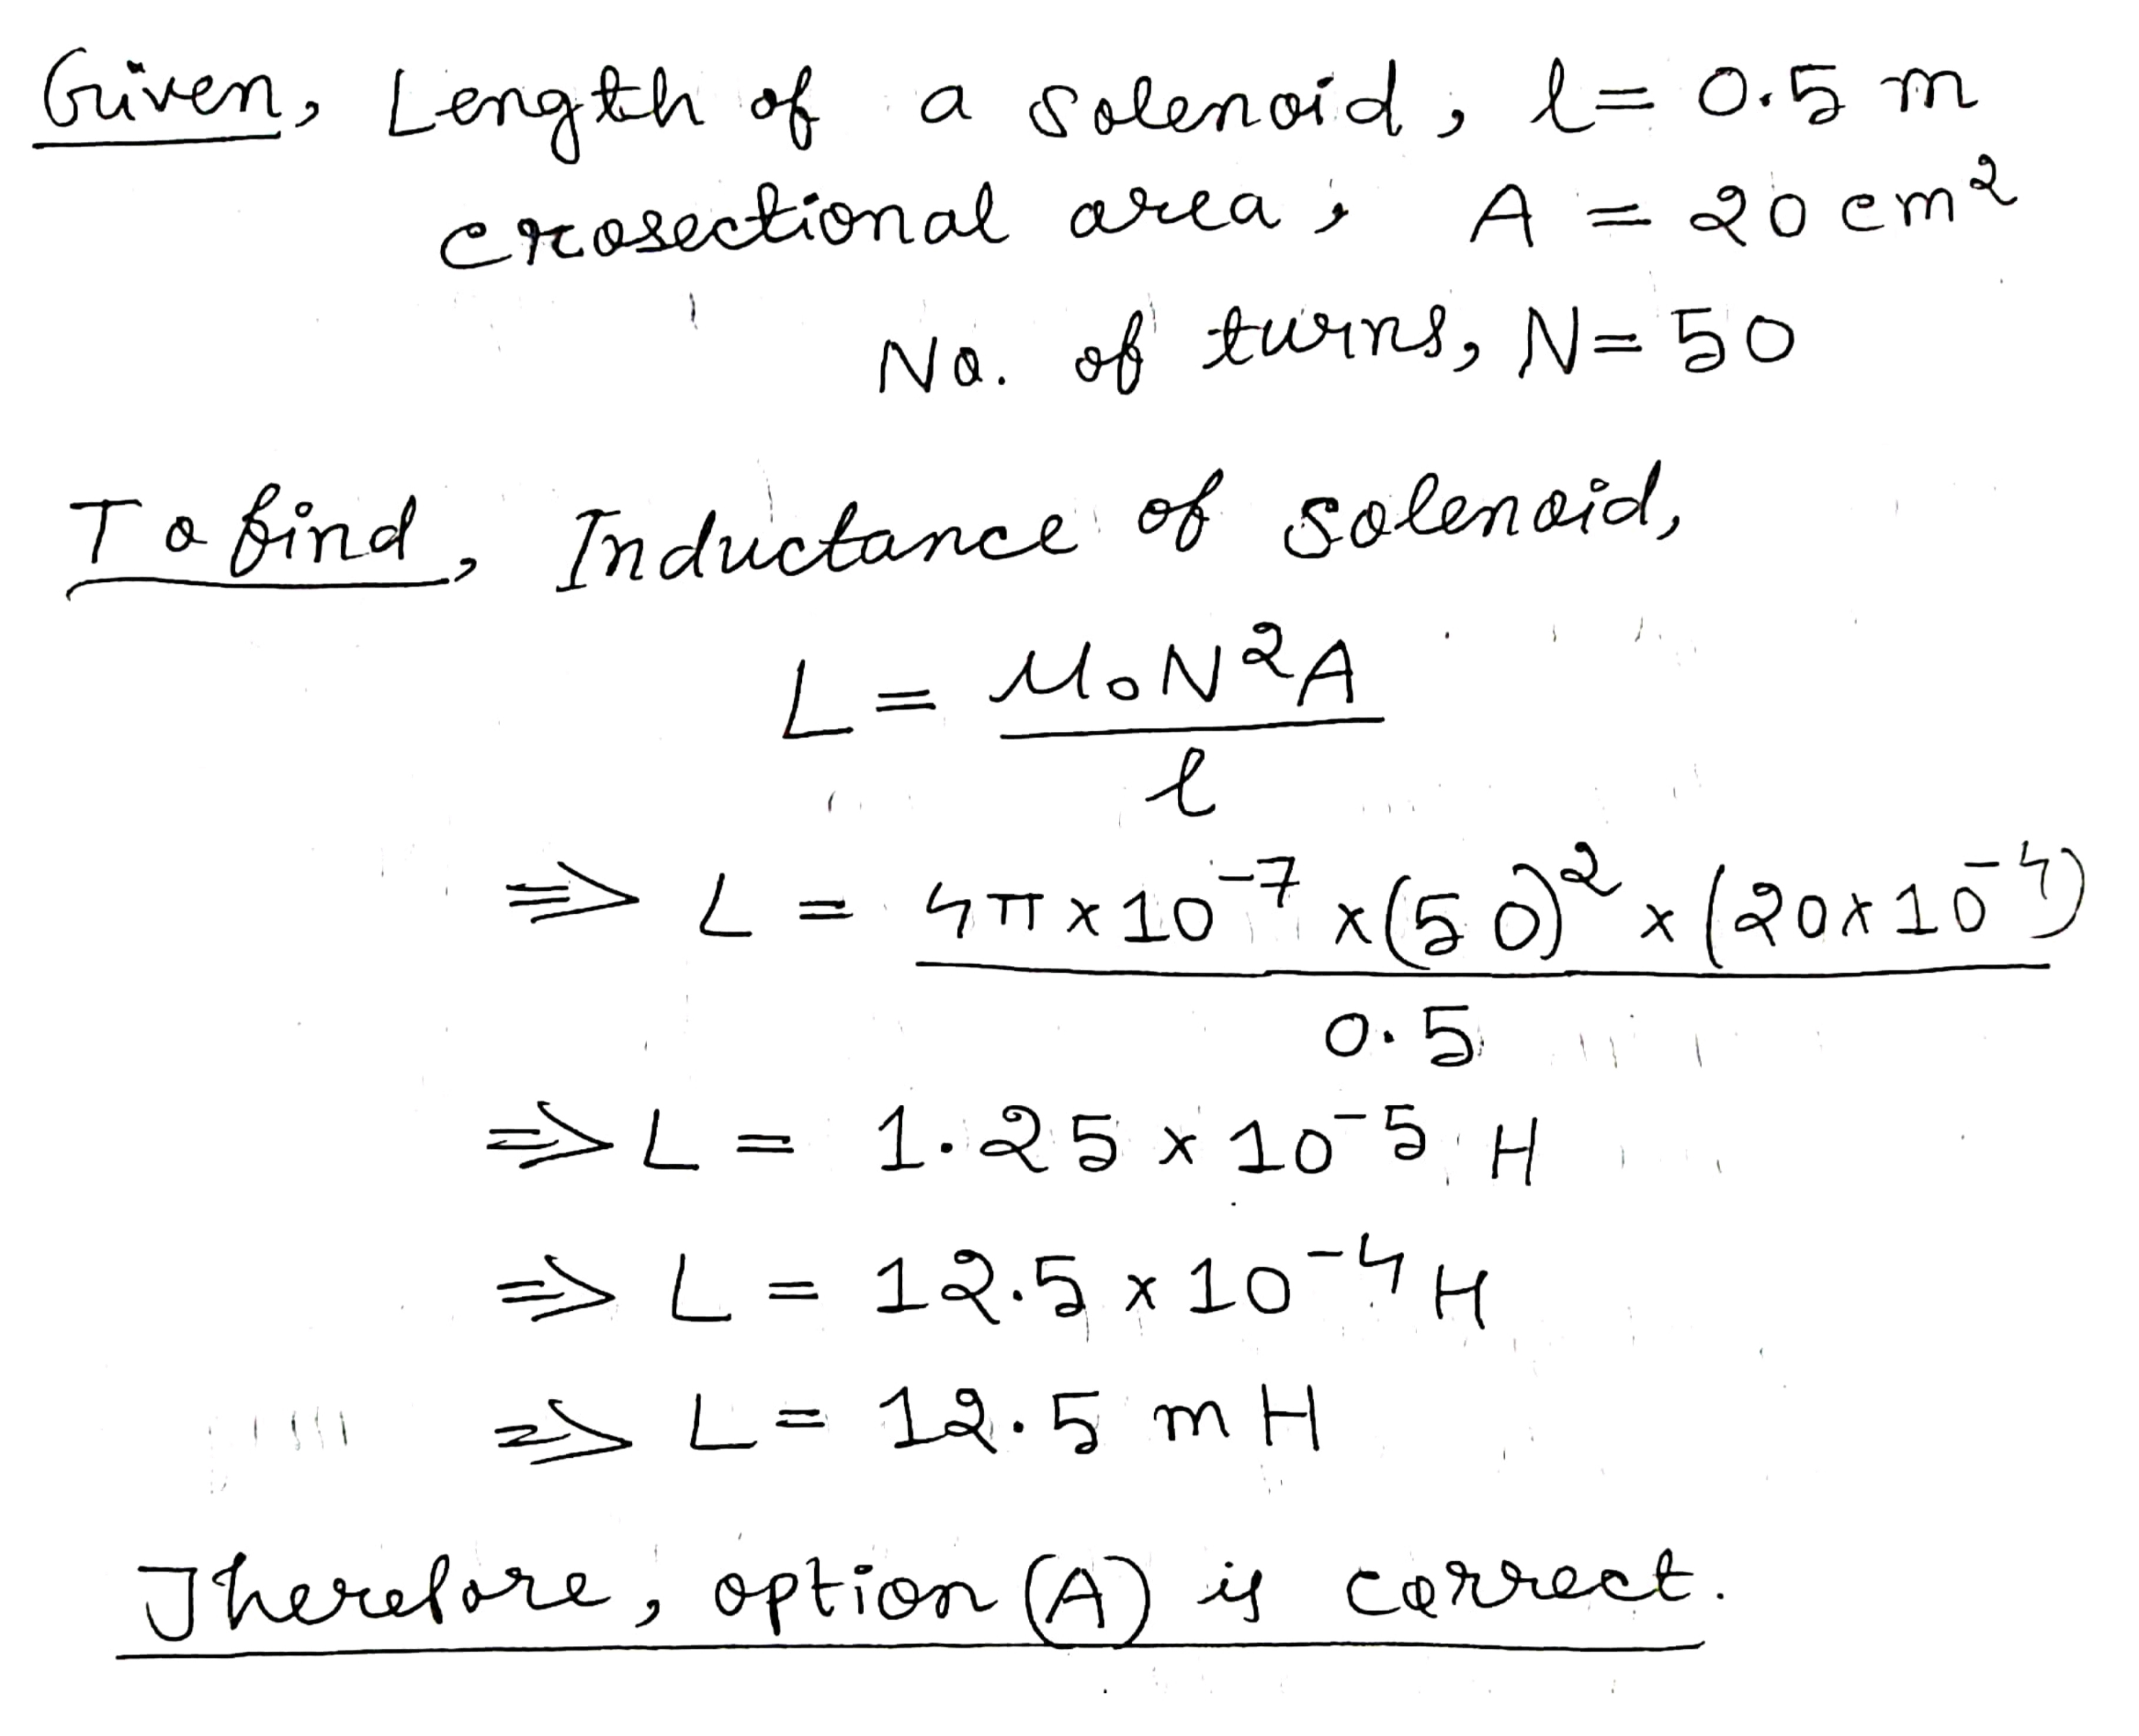 Given, Length of a solenoid, l = 0.5 m
crosectional area, A = 20 cm²
No. of turns, N = 50
To find, Inductance of solenoid,
L = μ₀N²A / l
⇒ L = 4π × 10⁻⁷ × (50)² × (20 × 10⁻⁴) / 0.5
⇒ L = 1.25 × 10⁻⁵ H
⇒ L = 12.5 × 10⁻⁴ H
⇒ L = 12.5 mH
Therefore, option (A) is correct.